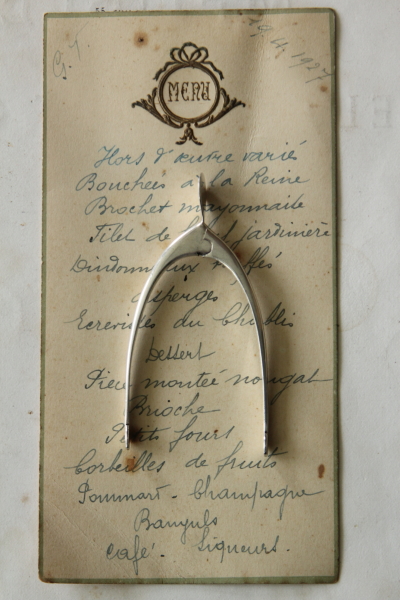 MENU
1927
Hors d'œuvre variés
Bouchées à la Reine
Brochet mayonnaise
Filet de jardinière
Dindonneaux
asperges
Ecrevisses du Chablis
Dessert
Pièce montée nougat
Brioche
Petits fours
Corbeilles de fruits
Pommard - Champagne
Banyuls
Café. Liqueurs.